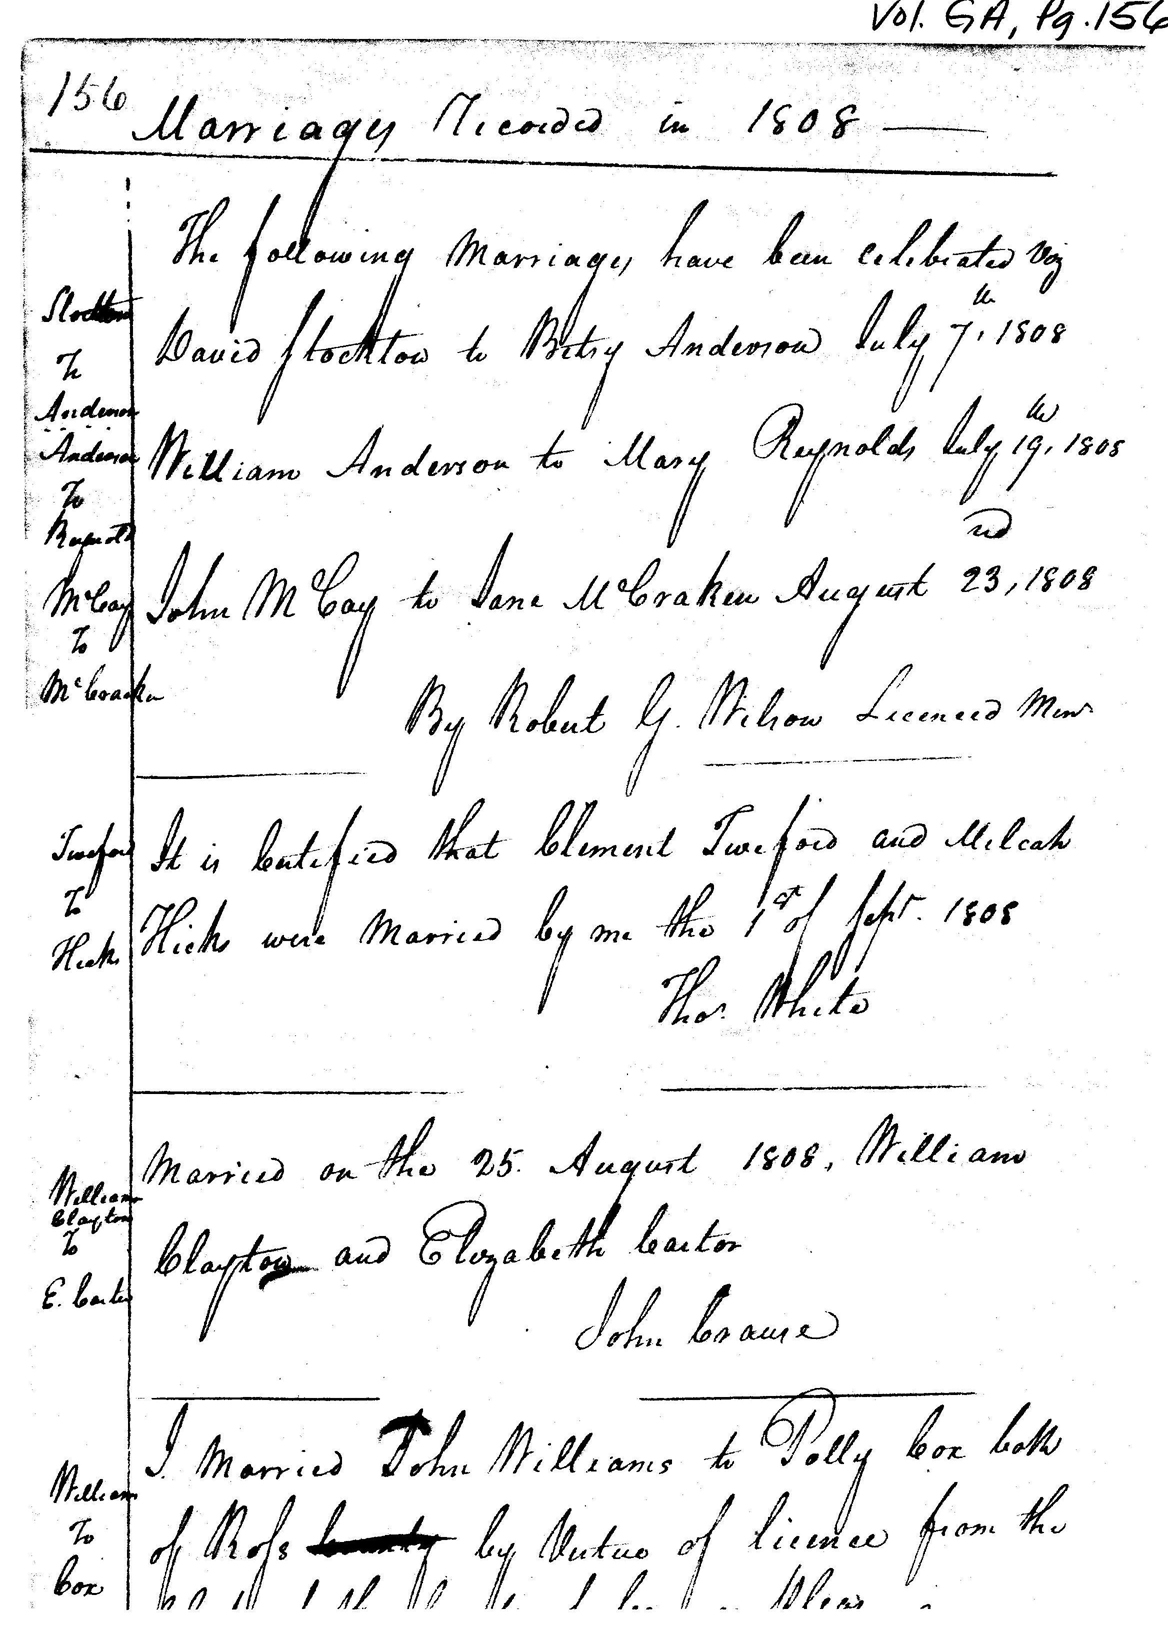 Vol. GA, Pg. 156
156
Marriages Recorded in 1808
The following Marriages have been Celebrated Viz
Stockton
To
Anderson
David Stockton to Betsy Anderson July 7th, 1808
Anderson
To
Reynolds
William Anderson to Mary Reynolds July 19th, 1808
McCay
To
McCracken
John McCay to Jane McCraken August 23rd, 1808
By Robert G. Wilson Licenced Minr
Tweford
To
Hicks
It is Certefied that Clement Tweford and Milcah
Hicks were Married by me the 1st of Sept. 1808
Thos. White
William
Clayton
To
E. Carter
Married on the 25. August 1808, William
Clayton and Elizabeth Carter
John Crouse
William
To
Cox
I Married John Williams to Polly Cox both
of Ross County by Vertue of licence from the